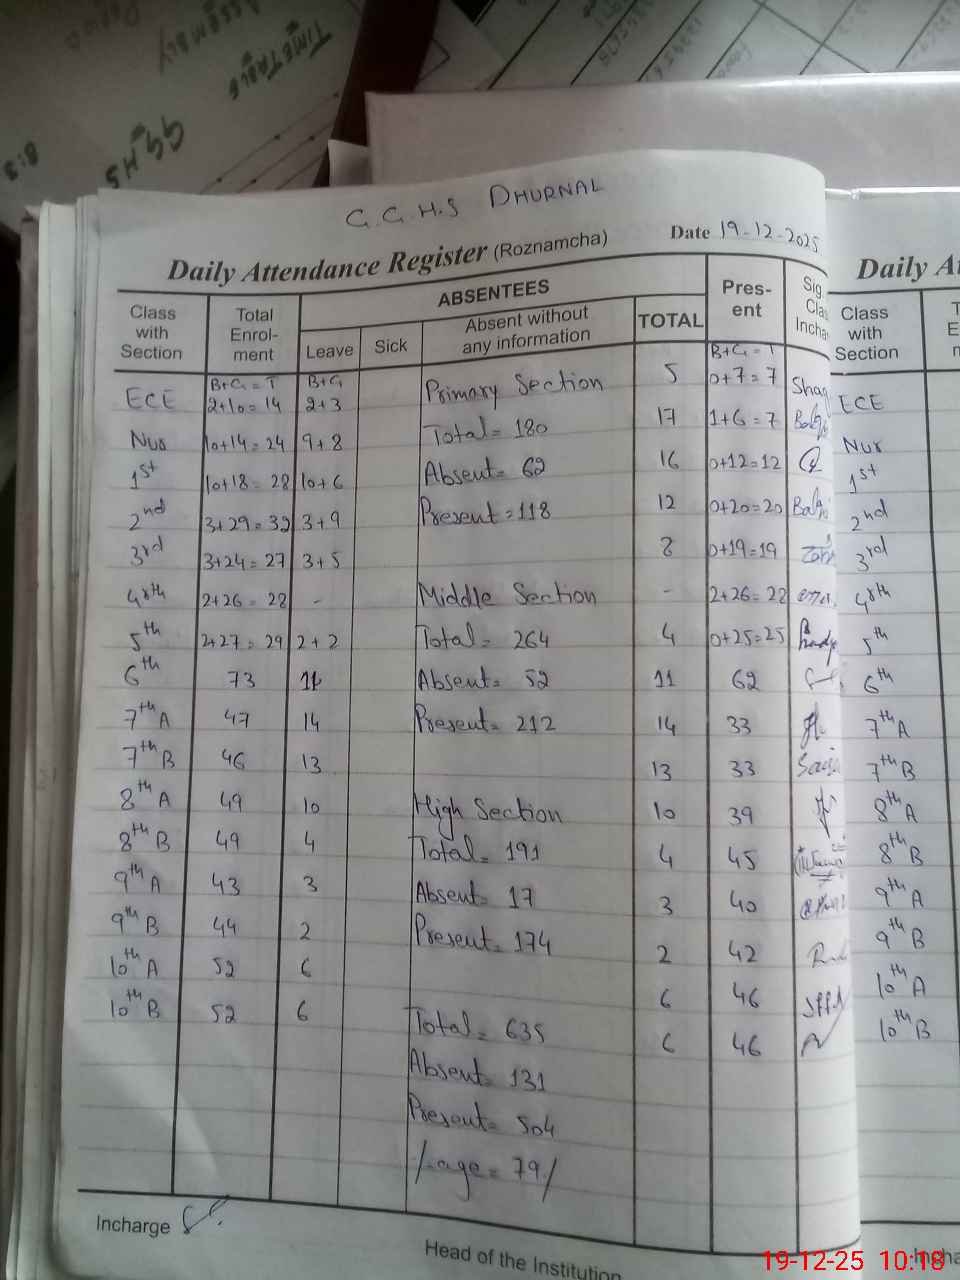 TIMETABLE
GGHS
8:3
G.G.H.S DHURNAL
Date 19-12-2025
Daily Attendance Register (Roznamcha)
Class with Section | Total Enrol-ment | ABSENTEES | Pres-ent | Sig. Cla Incha
Leave | Sick | Absent without any information | TOTAL
B+G=T | B+G | B+G=T
ECE | 2+10=14 | 2+3 | Primary Section | 5 | 0+7=7
Nur | 10+14=24 | 9+8 | Total=180 | 17 | 1+6=7
1st | 10+18=28 | 10+6 | Absent=62 | 16 | 0+12=12
2nd | 3+29=32 | 3+9 | Present=118 | 12 | 0+20=20
3rd | 3+24=27 | 3+5 | 8 | 0+19=19
4rth | 2+26=28 | - | Middle Section | - | 2+26=28
5th | 2+27=29 | 2+2 | Total=264 | 4 | 0+25=25
6th | 73 | 11 | Absent=52 | 11 | 62
7th A | 47 | 14 | Present=212 | 14 | 33
7th B | 46 | 13 | 13 | 33
8th A | 49 | 10 | High Section | 10 | 39
8th B | 49 | 4 | Total=191 | 4 | 45
9th A | 43 | 3 | Absent=17 | 3 | 40
9th B | 44 | 2 | Present=174 | 2 | 42
10th A | 52 | 6 | 6 | 46
10th B | 52 | 6 | Total=635 | 6 | 46
Absent=131
Present=504
/.age=79/
Incharge
Head of the Institution
Daily At
Class with Section
ECE
Nur
1st
2nd
3rd
4rth
5th
6th
7th A
7th B
8th A
8th B
9th A
9th B
10th A
10th B
Incha
19-12-25 10:18